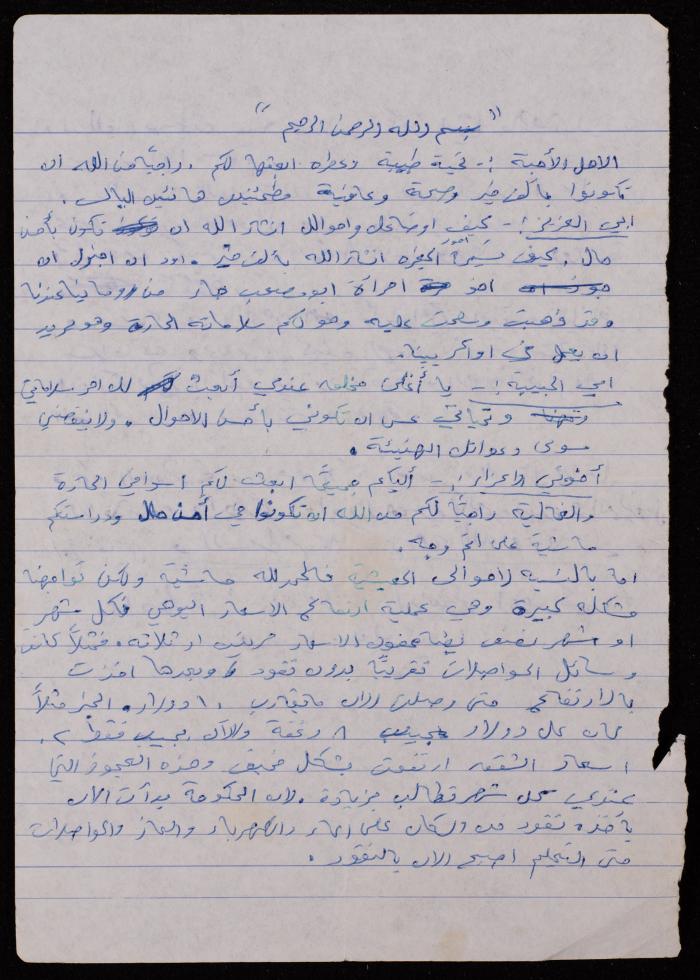 " بسم الله الرحمن الرحيم "
الاهل الأحبة :- تحية طيبة وعطره ابعثها لكم . راجيًا من الله ان
تكونوا بألف خير وصحة وعافية مطمئنين هانئين البال .
ابي العزيز :- كيف اوضاعك واحوالك انشاء الله ان تكون بأحسن
حال . كيف امور انشاء الله بألف خير . اود ان اقول ان
اخو امرأة ابو مصعب جار من عندنا
وقد ذهبت وسلمت عليه وهو لكم سلاماته الحارة وهو يريد
ان يعمل في اوكرينيا .
امي الحبيبة :- يا أغلى مخلوقه عندي أبعث لك احر سلاماتي
وتحياتي عسى ان تكوني بأحسن الاحوال . ولا ينقصني
سوى الهنيئة .
أخوتي الاعزاء :- أليكم جميعًا ابعث لكم اشواقي الحارة
والغالية راجيًا لكم من الله ان تكونوا في أحسن حال ودراستكم
ماشية على اتم وجه .
اما بالنسبه لأحوالي المعيشية فالحمدلله ماشية ولكن تواجهنا
مشكله كبيرة وهي عملية ارتفاع الاسعار اليومي فكل شهر
او شهر ونصف يضاعفون الاسعار مرتين او ثلاثه . فمثلاً كانت
وسائل المواصلات تقريبًا بدون نقود وبعدها اخذت
بالارتفاع حتى وصلت الان ما يقارب ١٠ دولار . الخبز مثلاً
كان كل دولار بجيب ٨ رغفة والآن بجيب فقط ٢ .
اسعار الشقق ارتفعت بشكل مخيف وهذه العجوز التي
عندي كل شهر تطالب بزيادة . لان الحكومة بدأت الان
يأخذه نقود من السكان على الماء والكهرباء والغاز والمواصلات
حتى التعليم اصبح الان بالنقود .